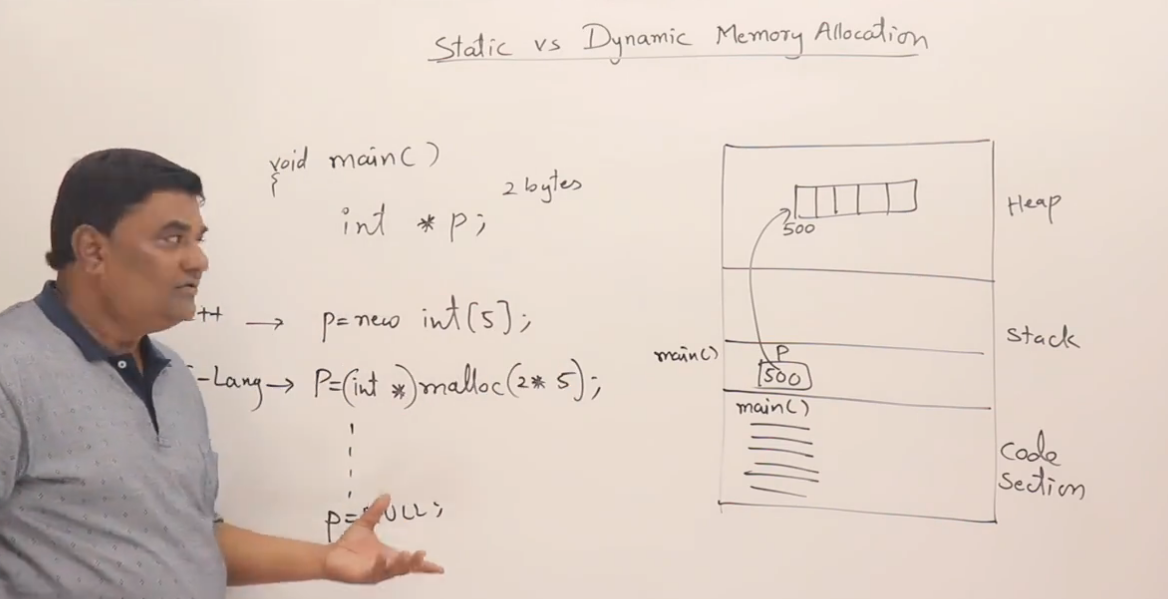 Static vs Dynamic Memory Allocation
void main()
{
2 bytes
int * p;
++ → p=new int[5];
-Lang → P=(int *)malloc(2* 5);
p=NULL;
Heap
500
Stack
main()
P
500
main()
Code
Section